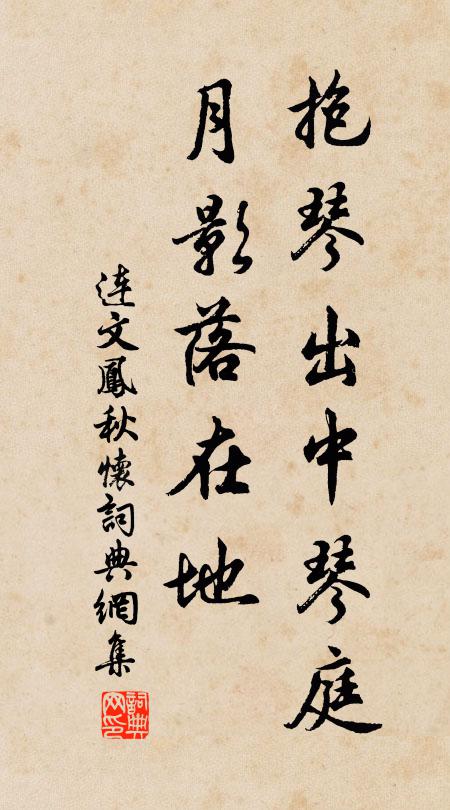 抱琴出中琴庭
月影落在地
連文鳳秋懷詞典網集
詞典网印